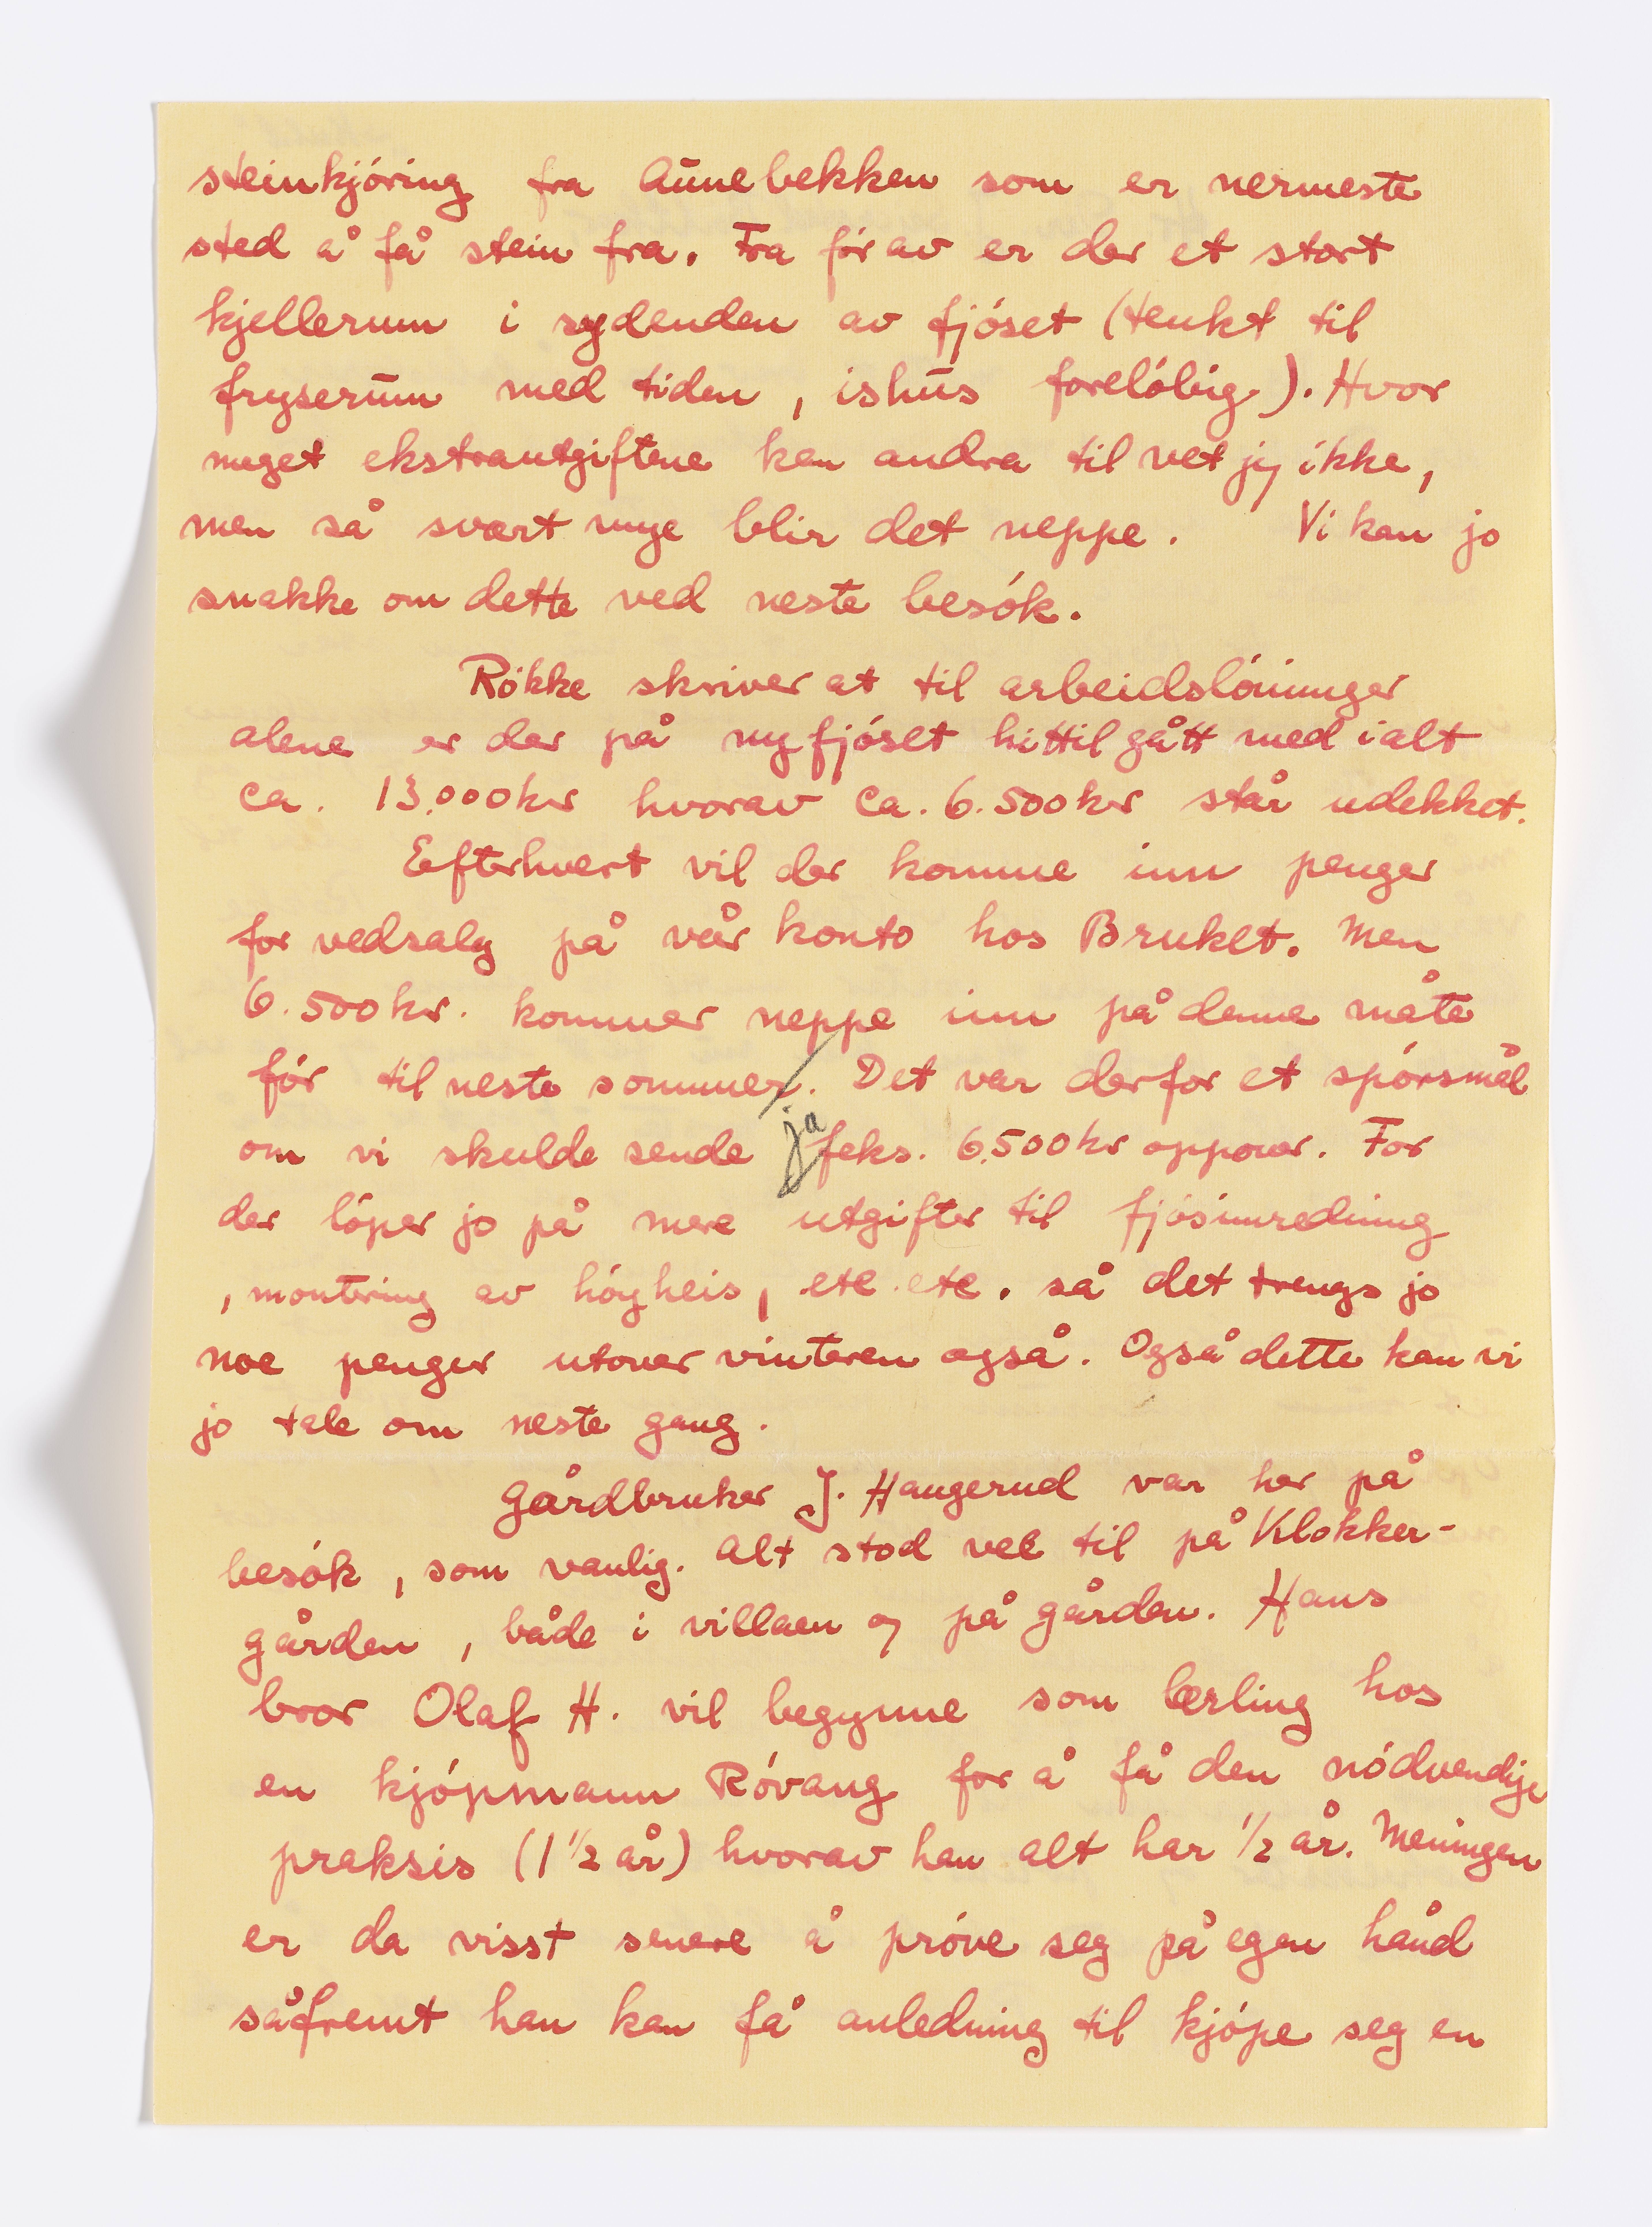 steinkjóring fra Aunebekken som er nermeste
sted å få stein fra. Fra før av er der et stort
kjellerum i sydenden av fjóset (tenkt til
fryserum med tiden, ishus forelóbig). Hvor
meget ekstrautgiftene kan andra til vet jeg ikke,
men så svært mye blir det neppe. Vi kan jo
snakke om dette ved neste besók.
Rókke skriver at til arbeidslóninger
alene er der på nyfjóset hittil gått med ialt
ca. 13.000 kr hvorav ca. 6.500 kr står udekket.
Efterhvert vil der komme inn penger
for vedsalg på vår konto hos Bruket. Men
6.500 kr. kommer neppe inn på denne måte
fór til neste sommer. Det var derfor et spórsmål
om vi skulde sende ja feks. 6.500 kr oppover. For
der lóper jo på mere utgifter til fjósinnredning
, montering av hóyheis, etc. etc. så det trengs jo
noe penger utover vinteren også. Også dette kan vi
jo tale om neste gang.
Gårdbruker J. Haugerud var her på
besók, som vanlig. Alt stod vel til på Klokker-
gården, både i villaen og på gården. Hans
bror Olaf H. vil begynne som lærling hos
en kjópmann Róvang for å få den nódvendige
praksis (1 1/2 år) hvorav han alt har 1/2 år. Meningen
er da visst senere å próve seg på egen hånd
såfremt han kan få anledning til kjópe seg en